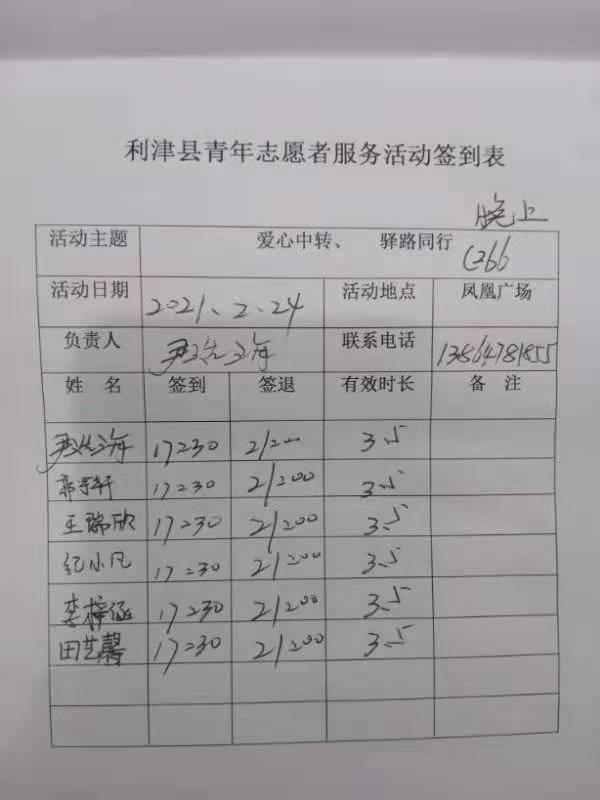 利津县青年志愿者服务活动签到表
晚上
活动主题 爱心中转、 驿路同行 C266
活动日期 2021、2、24 活动地点 凤凰广场
负责人 联系电话 13864781855
姓 名 签到 签退 有效时长 备 注
17=30 21=00 3.5
17=30 21=00 3.5
王瑞欣 17=30 21=00 3.5
纪小凡 17=30 21=00 3.5
李梓涵 17=30 21=00 3.5
田艺馨 17=30 21=00 3.5